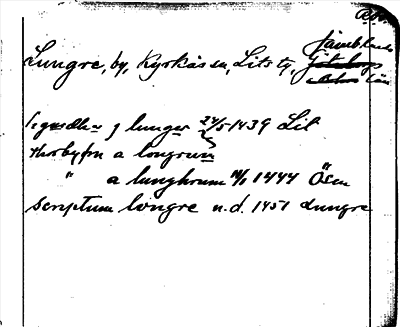 Lungre, by, Kyrkås sn, Lits tg, Jämtlands län
j lunger 24/5 1439 Lit
thorbyørn a longrum
" a lunghrum 1444 Ösm
scriptum longre n.d. 1451 Lungre